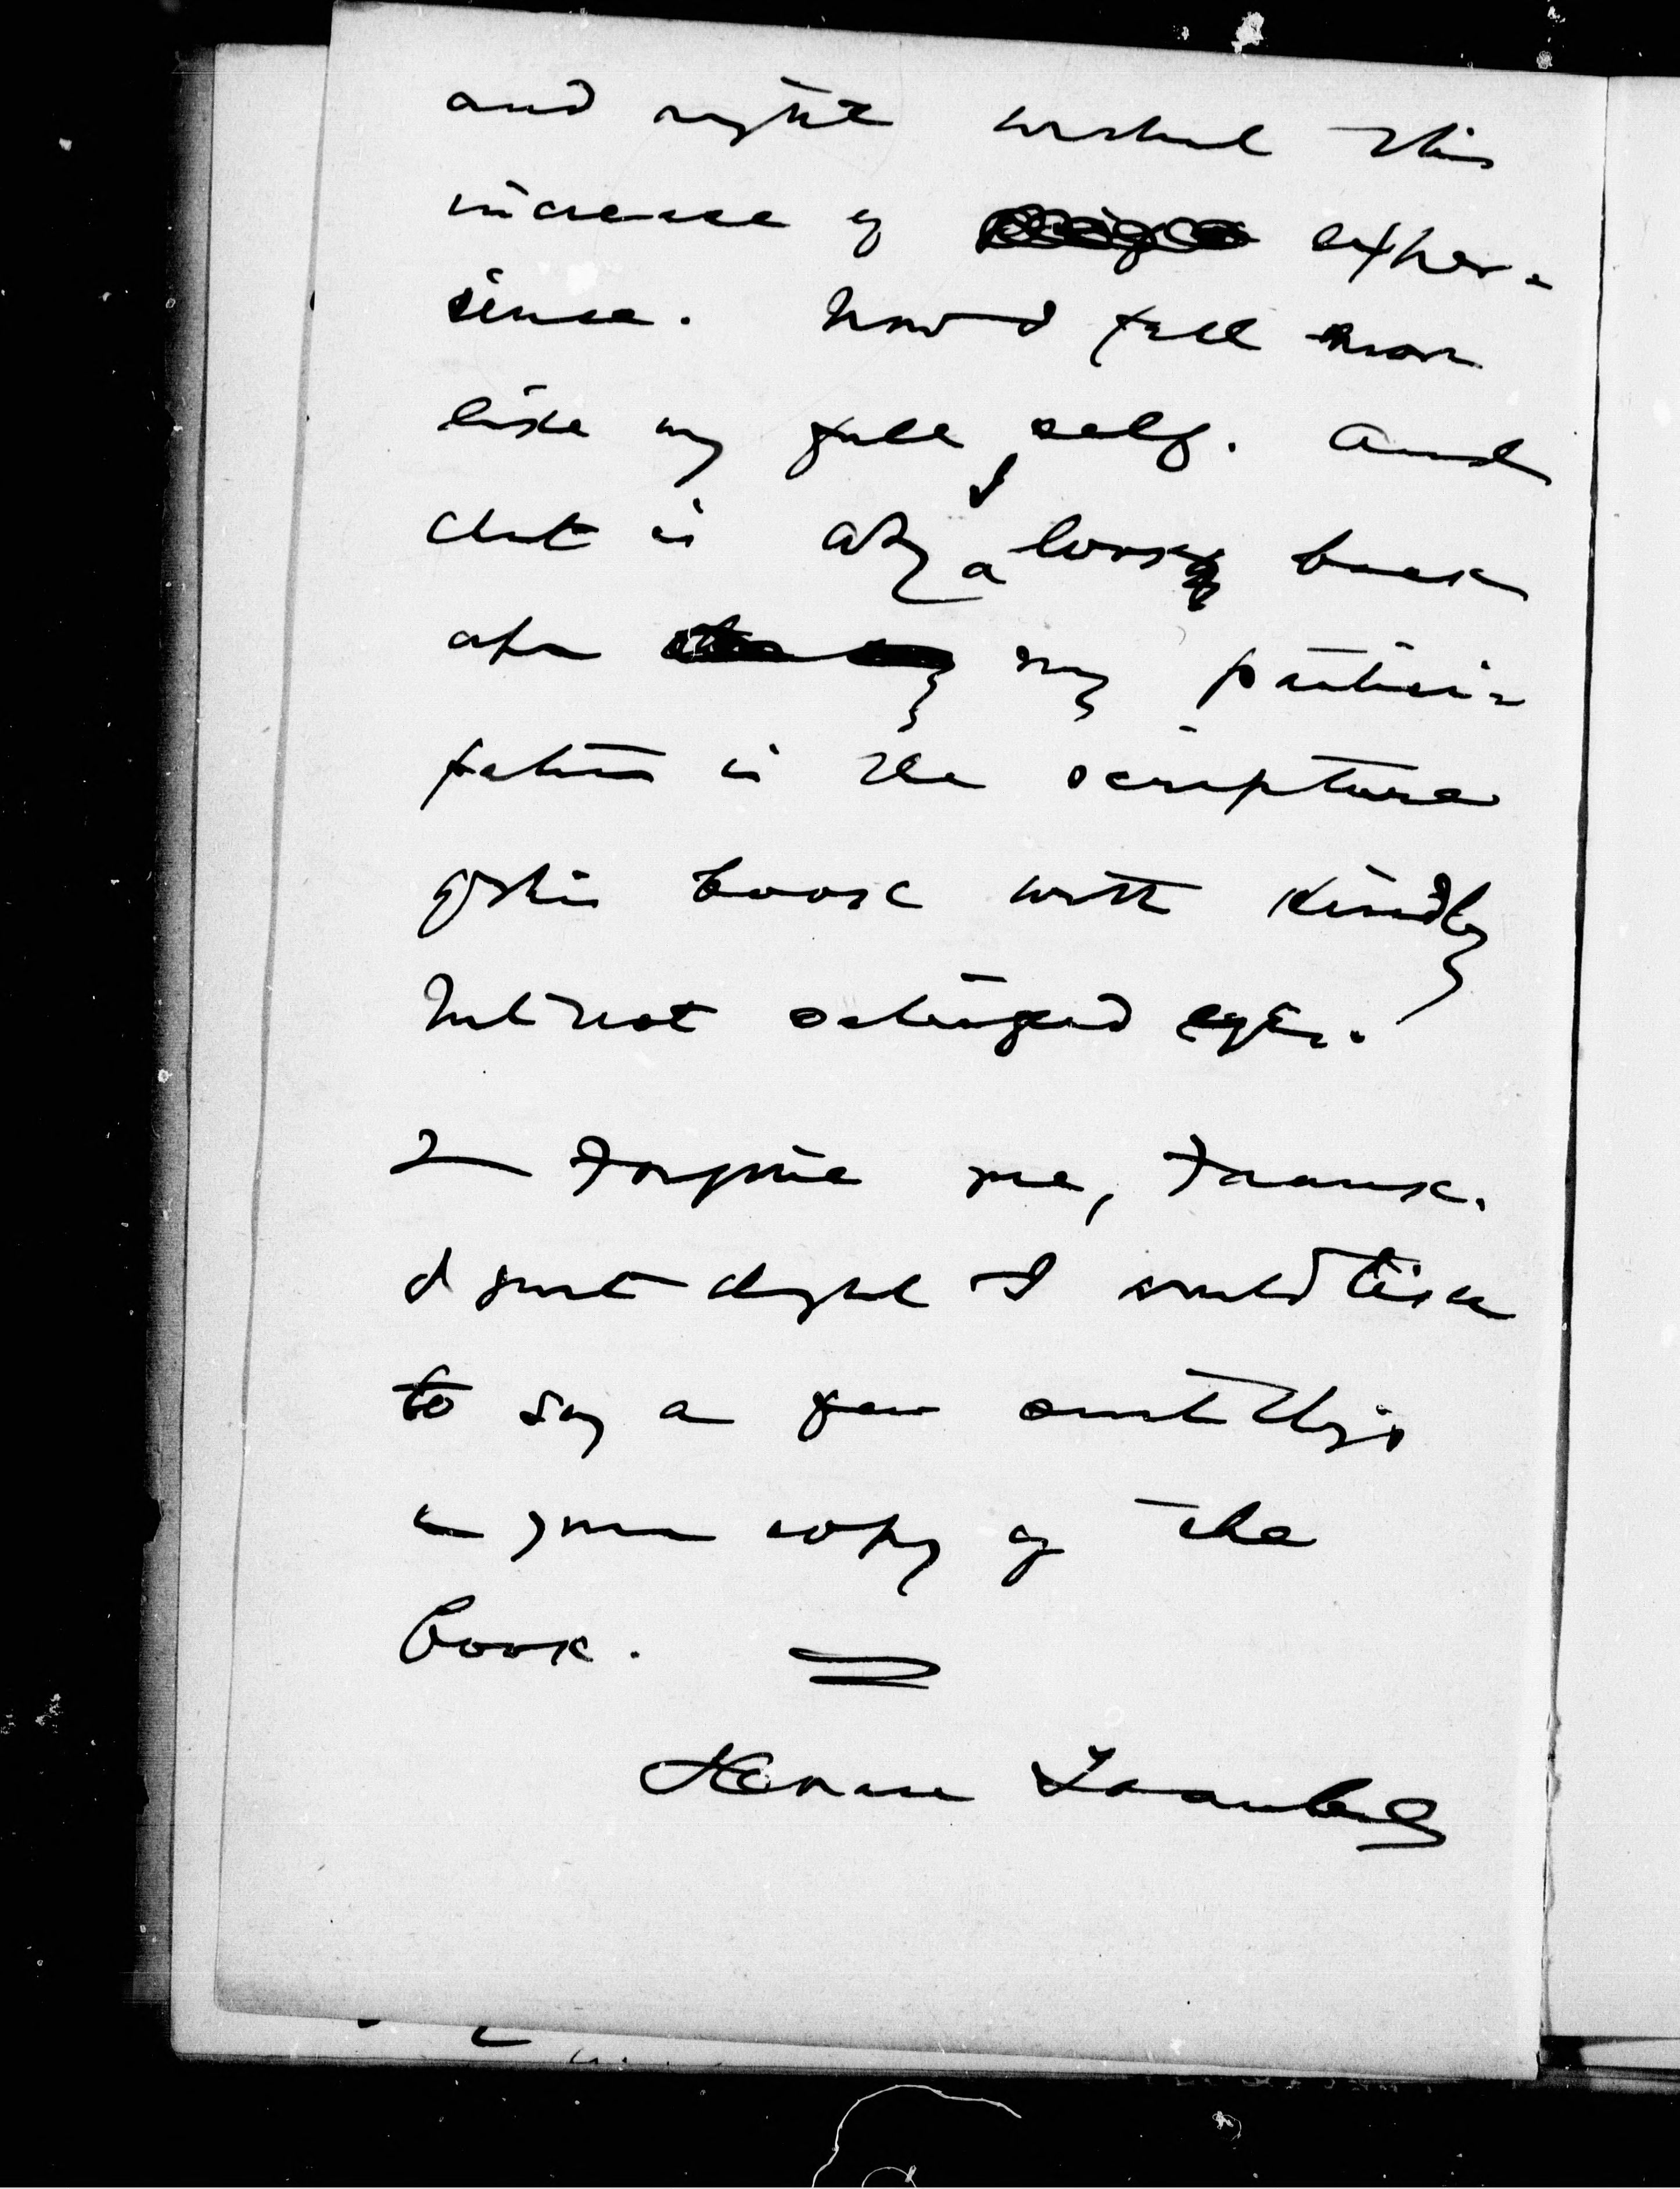 and right without this
increase of exper-
ience. Now I feel more
like my full self. And
that is why I look back
upon my partici-
pation in the scripture
of this book with kindly
but not satisfied eyes.
Forgive me, Frank.
I just thought I would like
to say a few such things
in your copy of the
book.
Horace Traubel